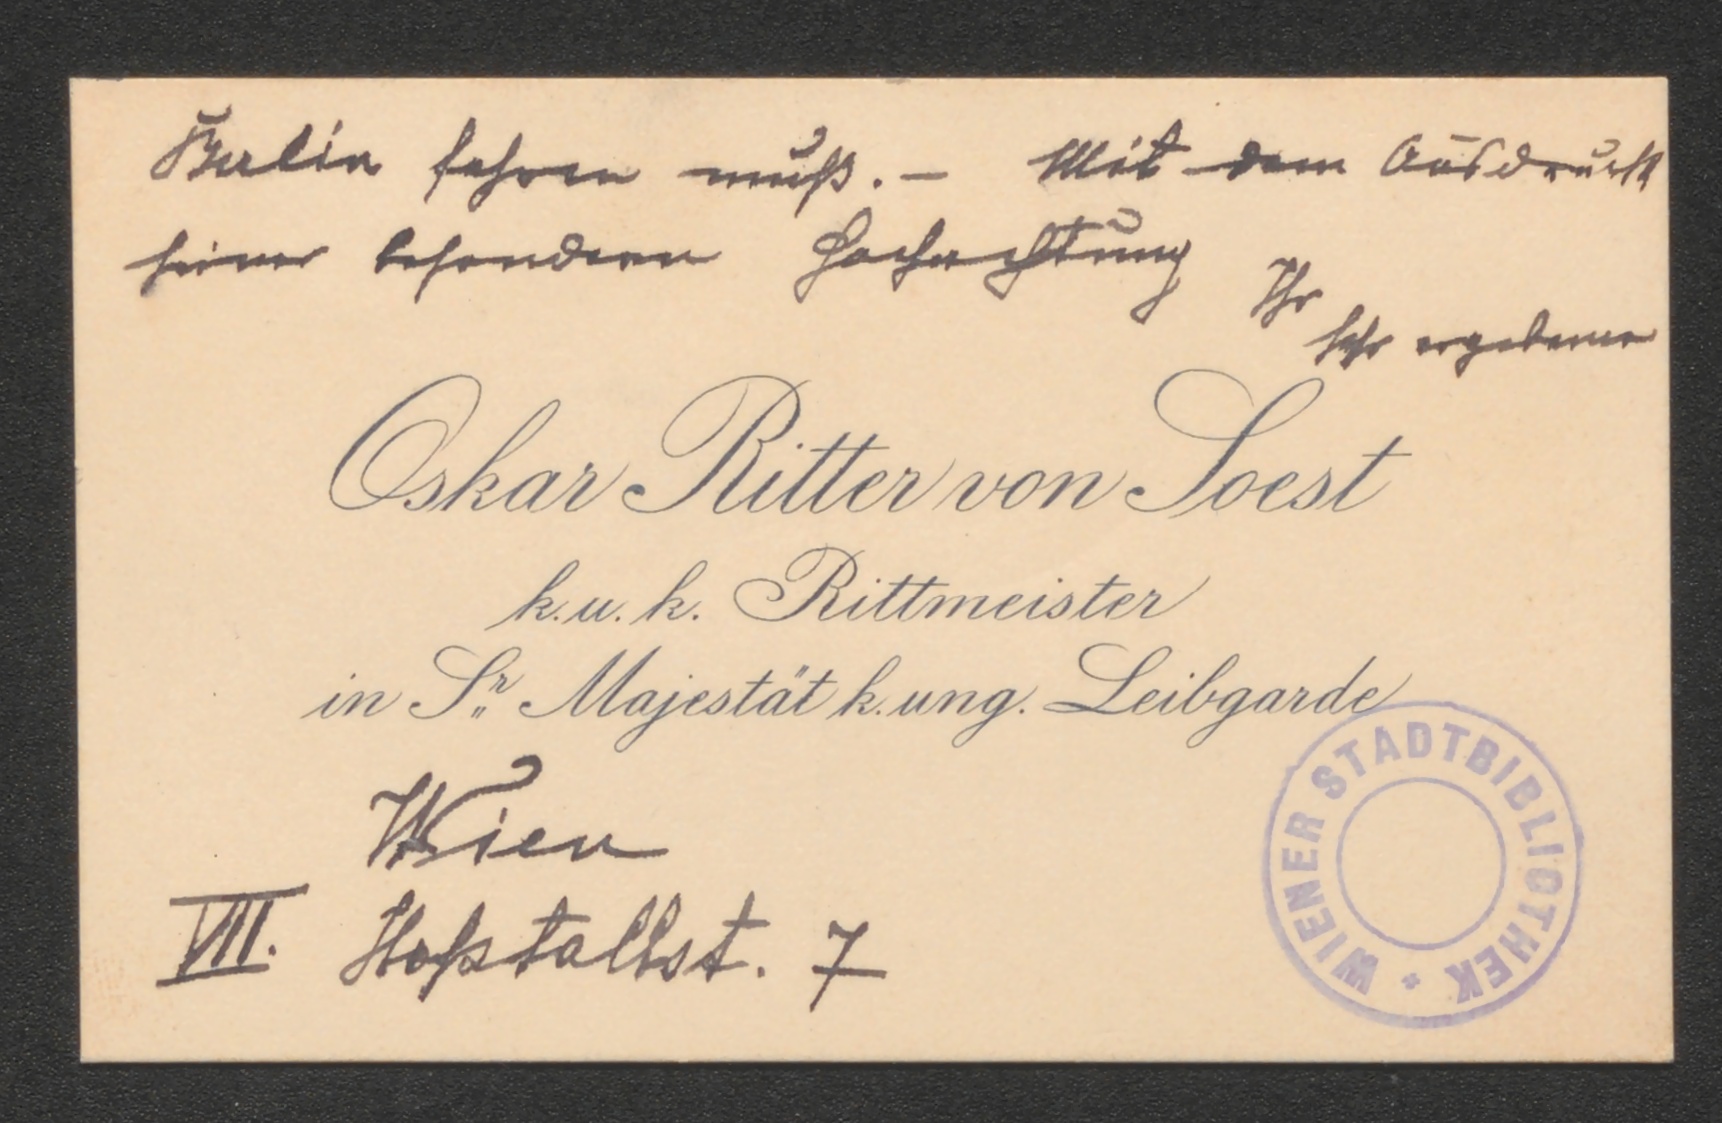 Berlin fahren muß. – Mit dem Ausdruck
seiner besonderen Hochachtung
Ihr
sehr ergebener
Oskar Ritter von Soest
k. u. k. Rittmeister
in Sr. Majestät k. ung. Leibgarde
Wien
VII. Hofstallst. 7
WIENER STADTBIBLIOTHEK *